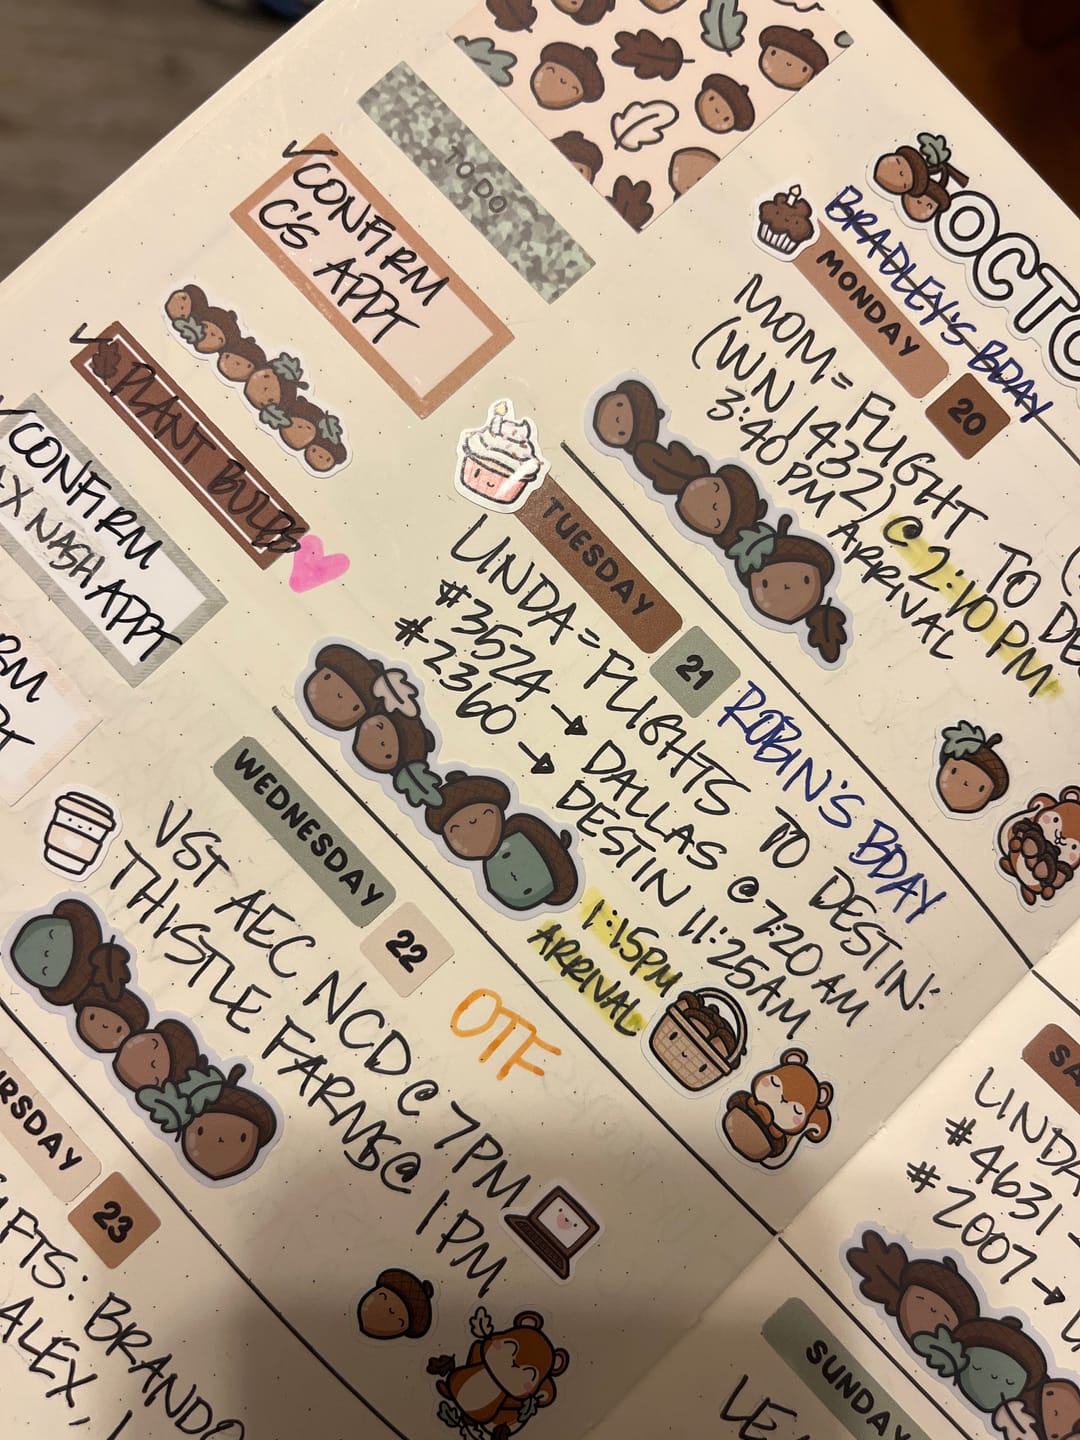 TO DO
✓CONFIRM
C'S APPT
✓PLANT BULBS
CONFIRM
NASH APPT
OCTO
BRADLEY'S BDAY
MONDAY
20
MOM = FLIGHT TO
(WN 1432) @ 2:10 PM
3:40 PM ARRIVAL
TUESDAY
21
ROBIN'S BDAY
LINDA = FLIGHTS TO DESTIN:
#3524 → DALLAS @ 7:20 AM
#2360 → DESTIN 11:25AM
1:15PM
ARRIVAL
WEDNESDAY
22
OTF
VST AEC NCD @ 7PM
THISTLE FARMS @ 1 PM
RSDAY
23
FTS: BRANDO
ALEX,
SA
LINDA
#4631
#2007 →
SUNDAY
LE